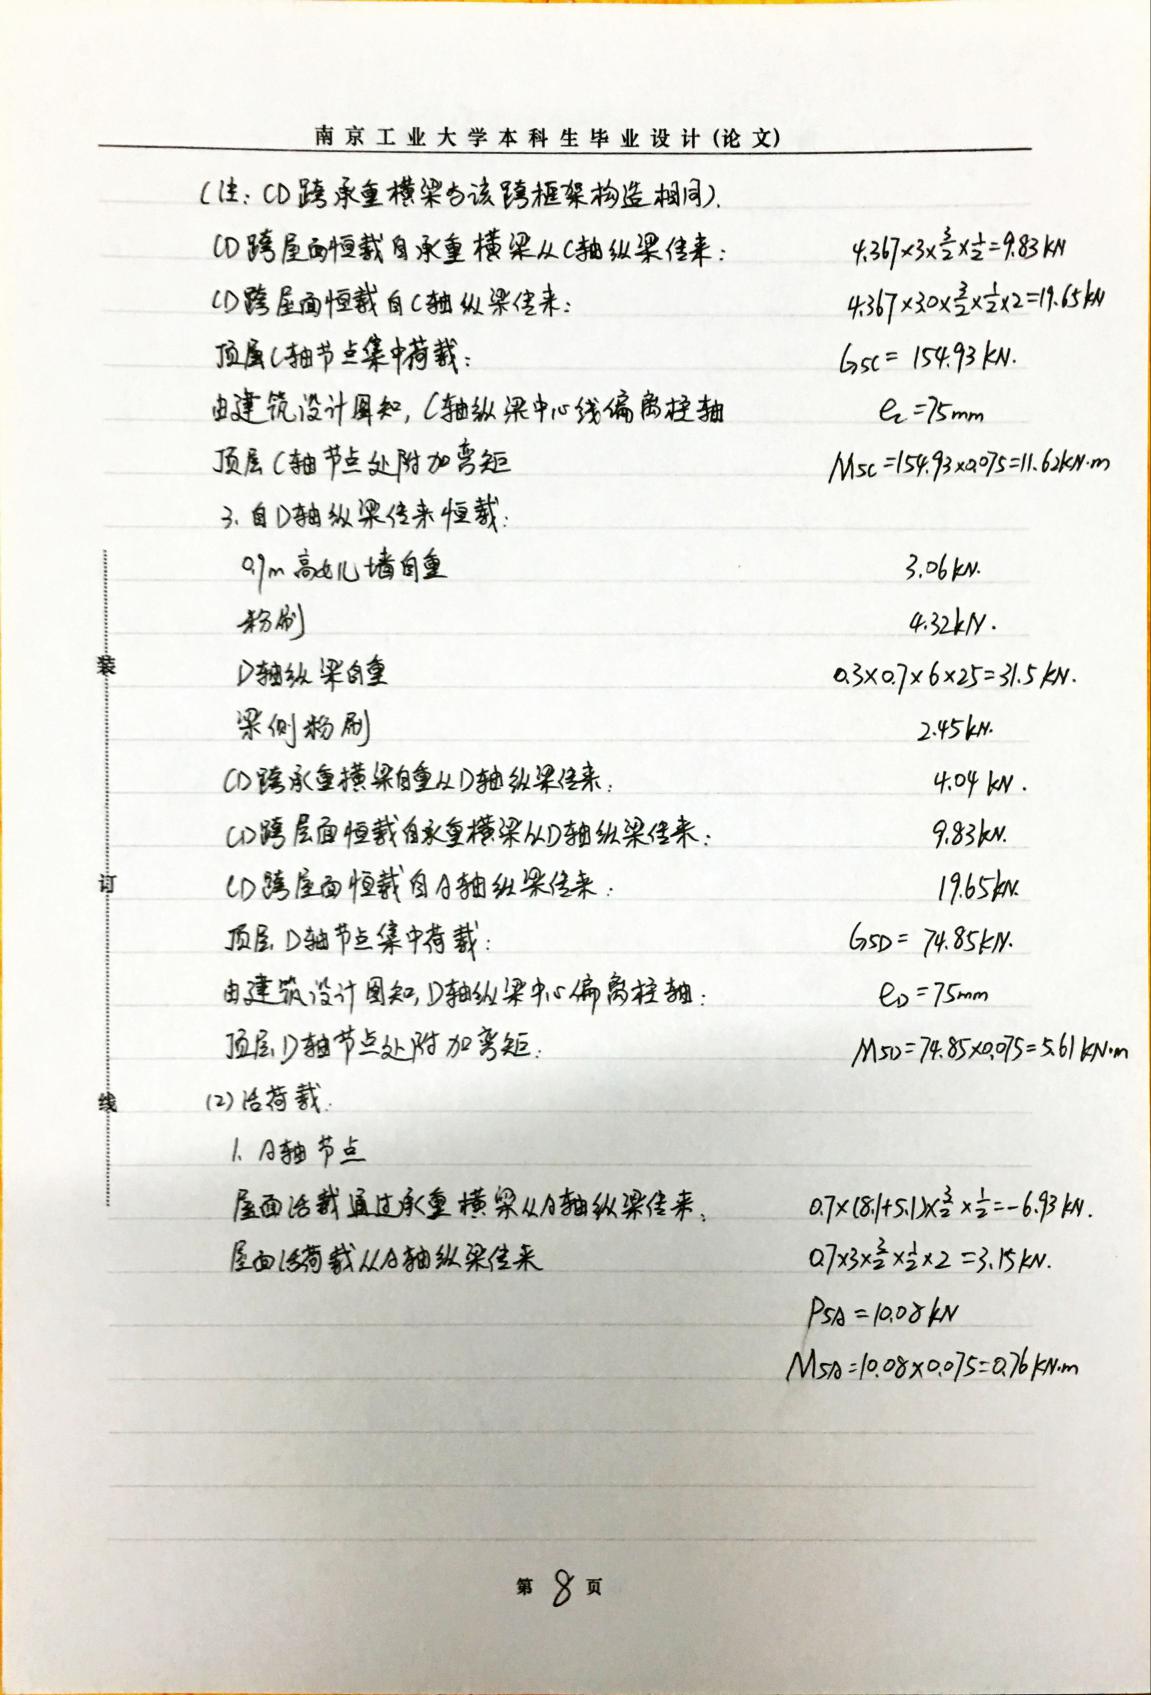 南京工业大学本科生毕业设计(论文)
(注: CD跨承重横梁与该跨框架构造相同).
CD跨屋面恒载自承重横梁从C轴纵梁传来: 4.367×3×3/2×1/2=9.83kN
CD跨屋面恒载自C轴纵梁传来: 4.367×3.0×3/2×1/2×2=19.65kN
顶层C轴节点集中荷载: G5C= 154.93kN.
由建筑设计图知, C轴纵梁中心线偏离柱轴 ec=75mm
顶层C轴节点处附加弯矩 M5C=154.93×0.075=11.62kN·m
3. 自D轴纵梁传来恒载:
0.9m高女儿墙自重 3.06kN.
粉刷 4.32kN.
装
D轴纵梁自重 0.3×0.7×6×25=31.5kN.
梁侧粉刷 2.45kN.
CD跨承重横梁自重从D轴纵梁传来: 4.04kN.
CD跨层面恒载自承重横梁从D轴纵梁传来: 9.83kN.
订
CD跨屋面恒载自A轴纵梁传来: 19.65kN.
顶层D轴节点集中荷载: G5D= 74.85kN.
由建筑设计图知, D轴纵梁中心偏离柱轴: eD=75mm
顶层D轴节点处附加弯矩: M5D=74.85×0.075=5.61kN·m
线
(2)活荷载:
1. A轴节点
屋面活载通过承重横梁从A轴纵梁传来: 0.7×(8.1+5.1)×3/2×1/2=-6.93kN.
屋面活荷载从A轴纵梁传来 0.7×3×3/2×1/2×2=3.15kN.
P5A=10.08kN
M5A=10.08×0.075=0.76kN·m
第8页